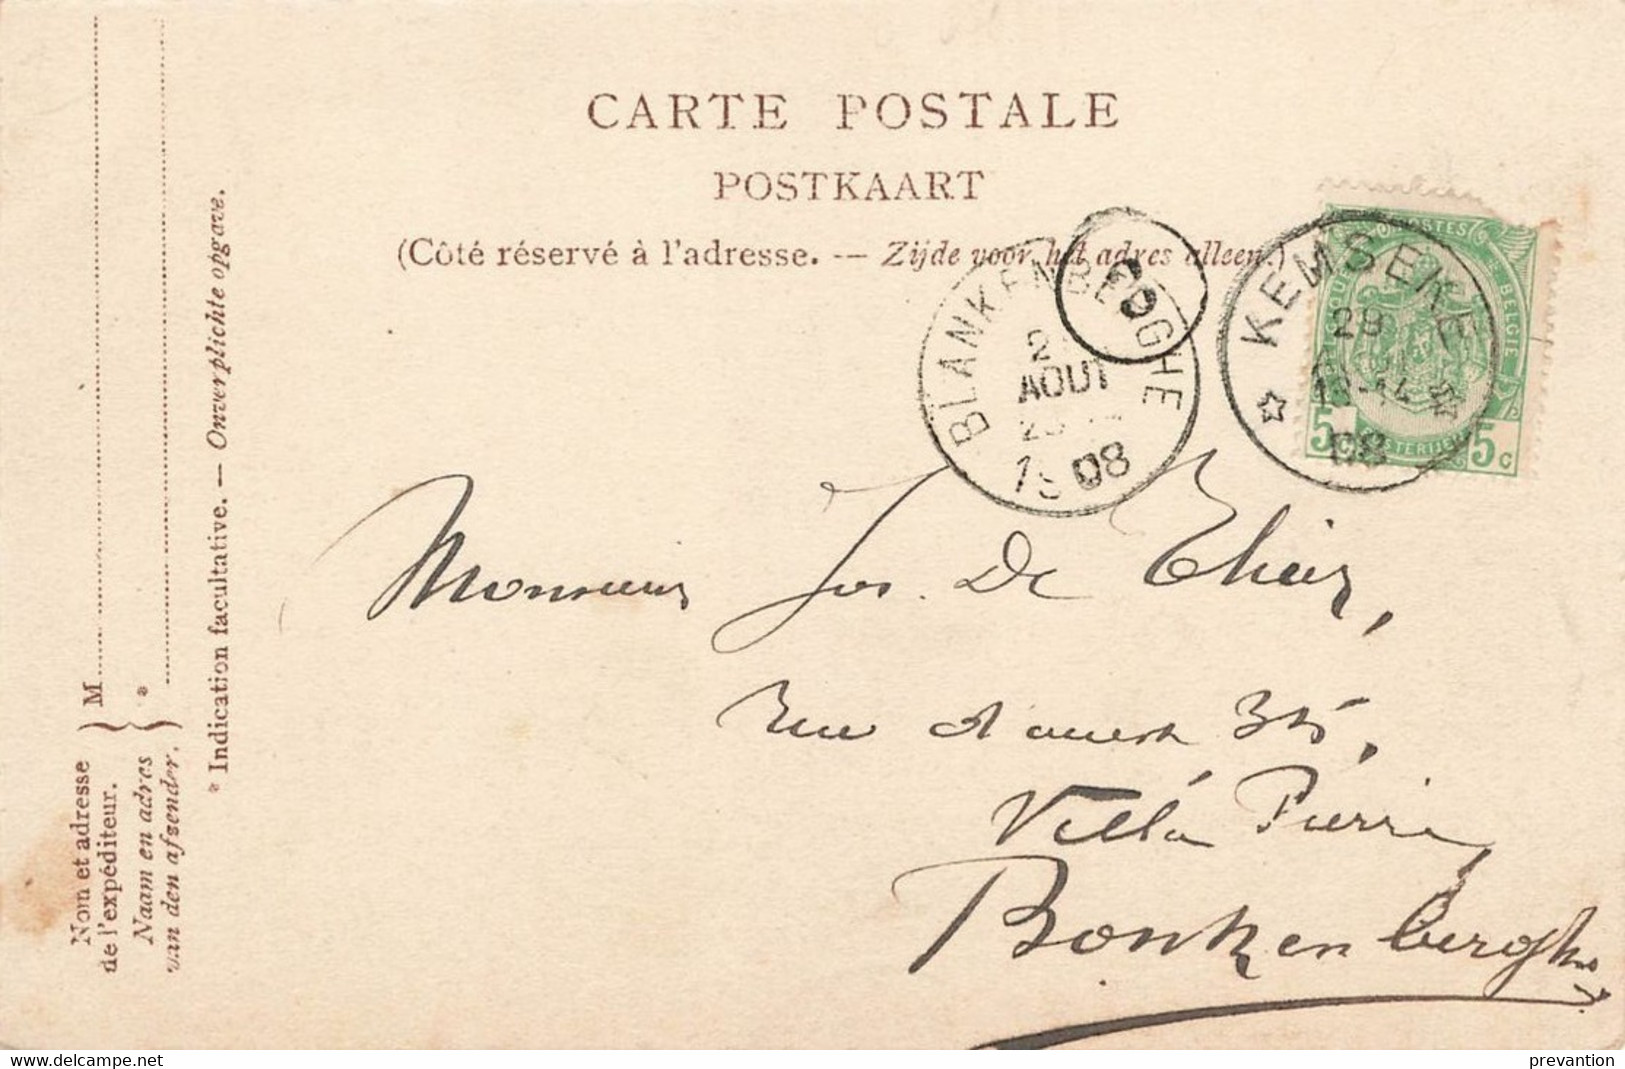 CARTE POSTALE
POSTKAART
(Côté réservé à l'adresse. -- Zijde voor het adres alleen.)
BLANKENBERGHE
AOUT
1908
6
KEMSEKE
28
13-14
08
POSTES
BELGIE
5c 5c
Monsieur Jos. De
rue
Villa Pierre
Blankenberghe
Nom et adresse
de l'expéditeur.
Naam en adres
van den afzender.
M
*
* Indication facultative. — Onverplichte opgave.
www.delcampe.net
prevantion